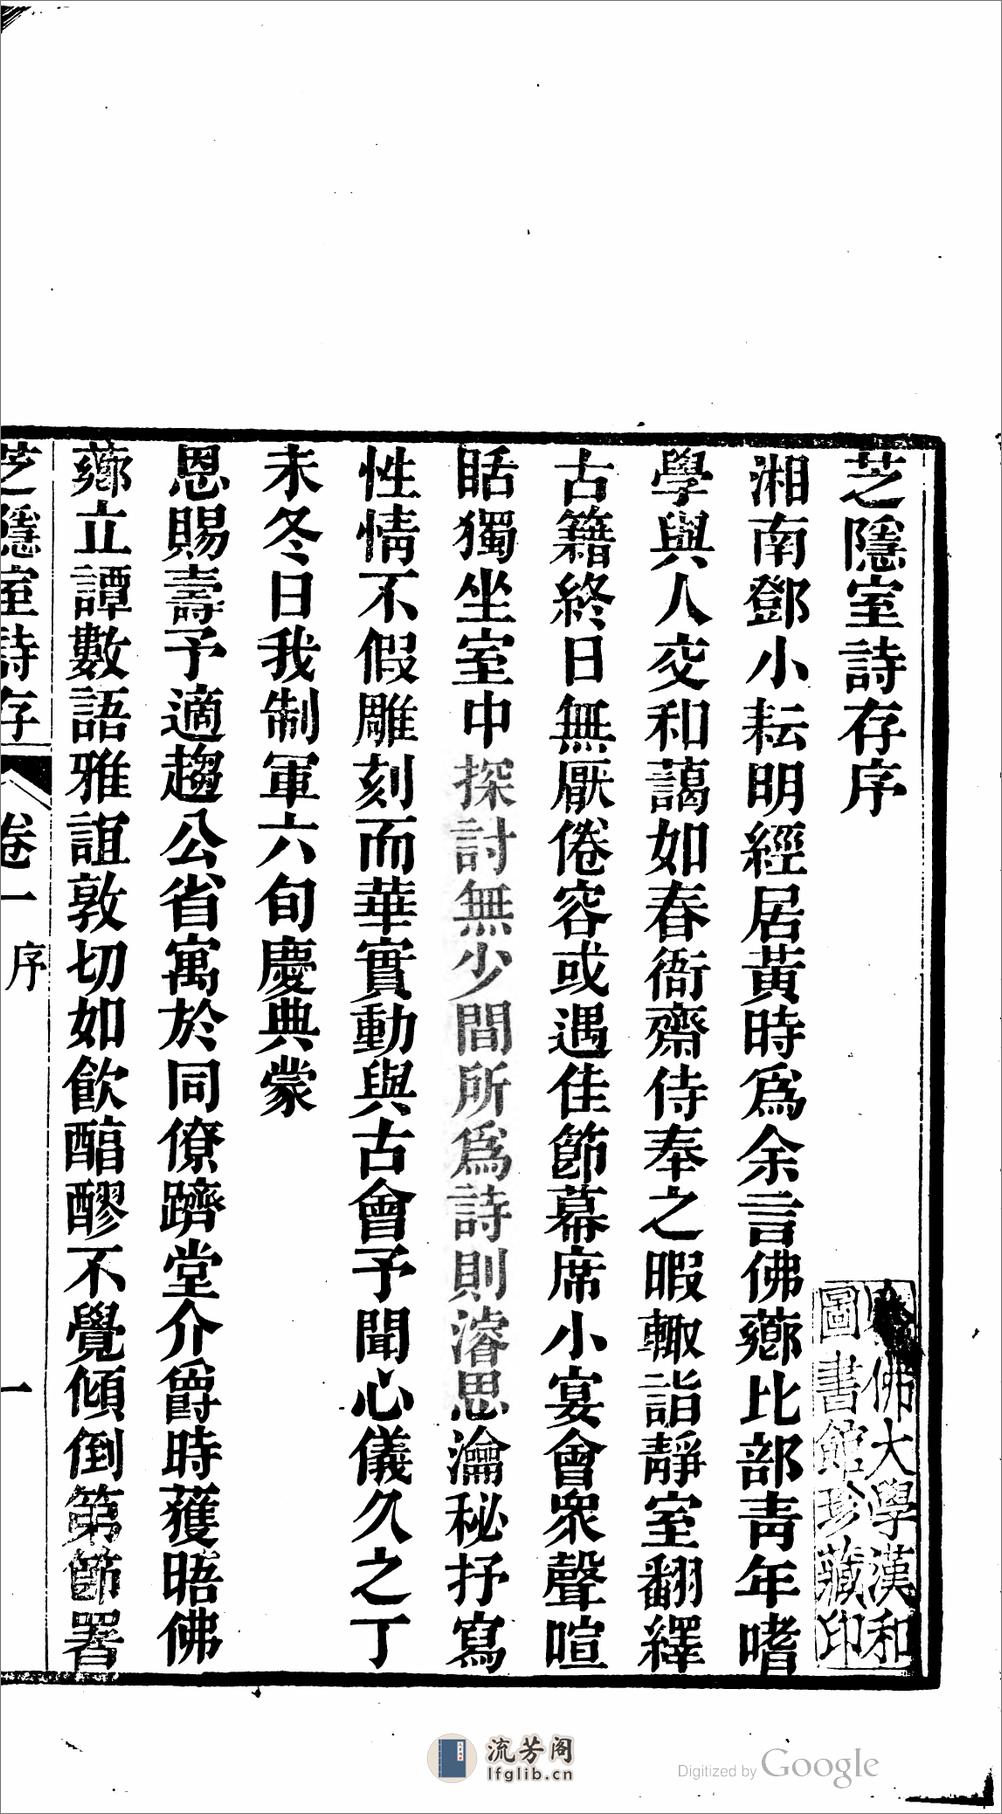 芝隱室詩存序
湘南鄧小耘明經居黃時爲余言佛薌比部青年嗜
學與人交和藹如春衙齋侍奉之暇輙詣靜室翻繹
古籍終日無厭倦容或遇佳節幕席小宴會衆聲喧
聒獨坐室中探討無少間所爲詩則濬思瀹秘抒寫
性情不假雕刻而華實動與古會予聞心儀久之丁
未冬日我制軍六旬慶典蒙
恩賜壽予適趨公省寓於同僚躋堂介爵時獲晤佛
薌立譚數語雅誼敦切如飲醕醪不覺傾倒第節署
芝隱室詩存
卷一
序
一
佛大學漢和
圖書館珍藏印
流芳阁
lfglib.cn
Digitized by Google